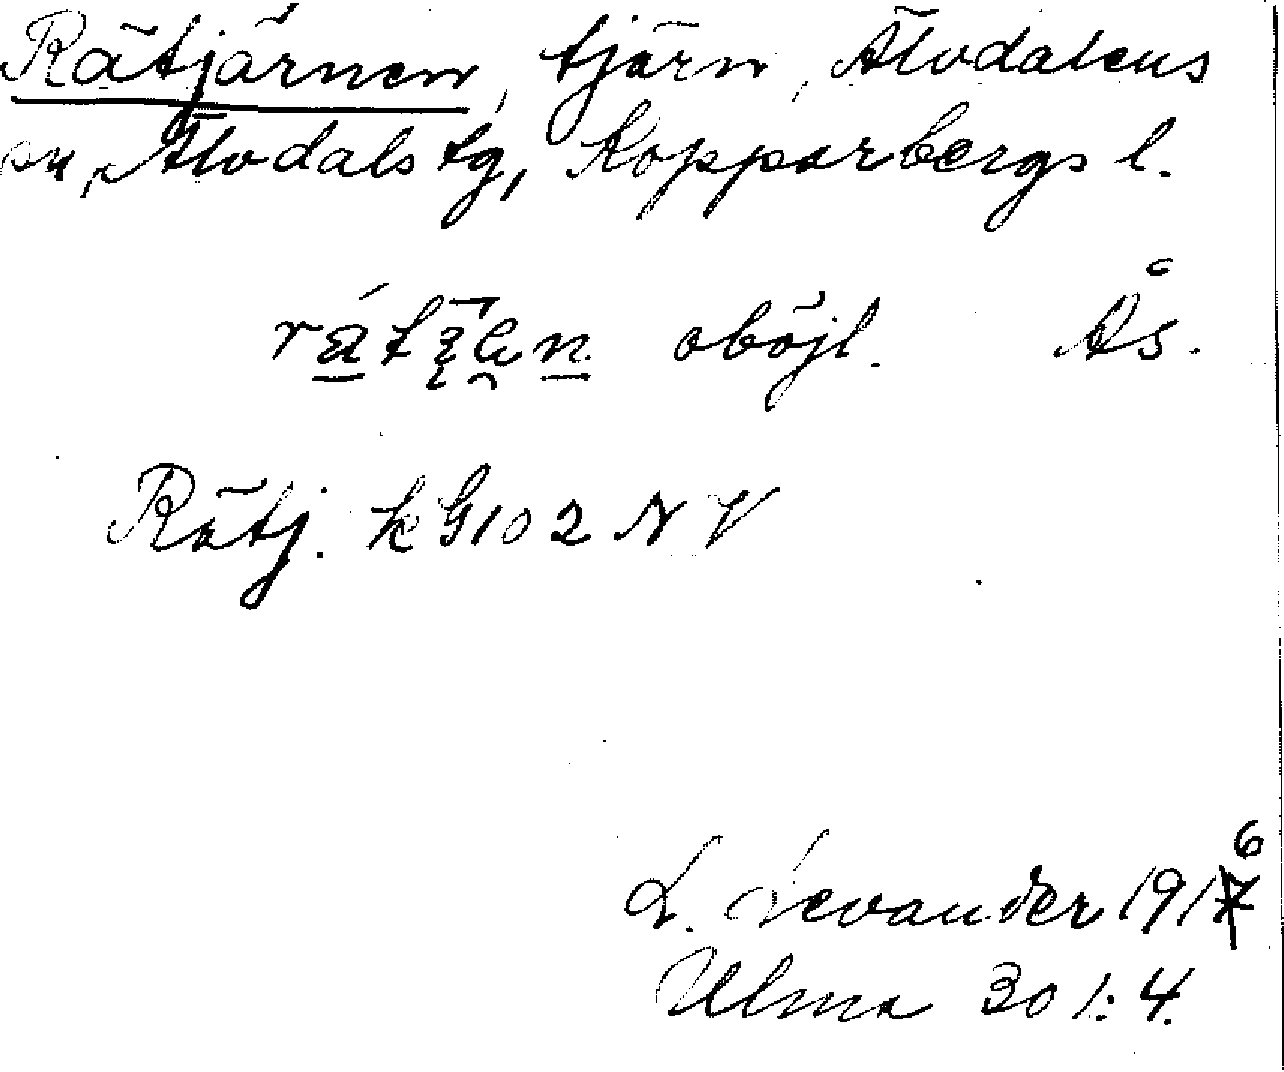 Rätjärnen, tjärn, Älvdalens
sn, Älvdals tg, Kopparbergs l.
oböjl. Ås.
Rätj. kG102 NV
L. Levander 1916
Ulma 301:4.